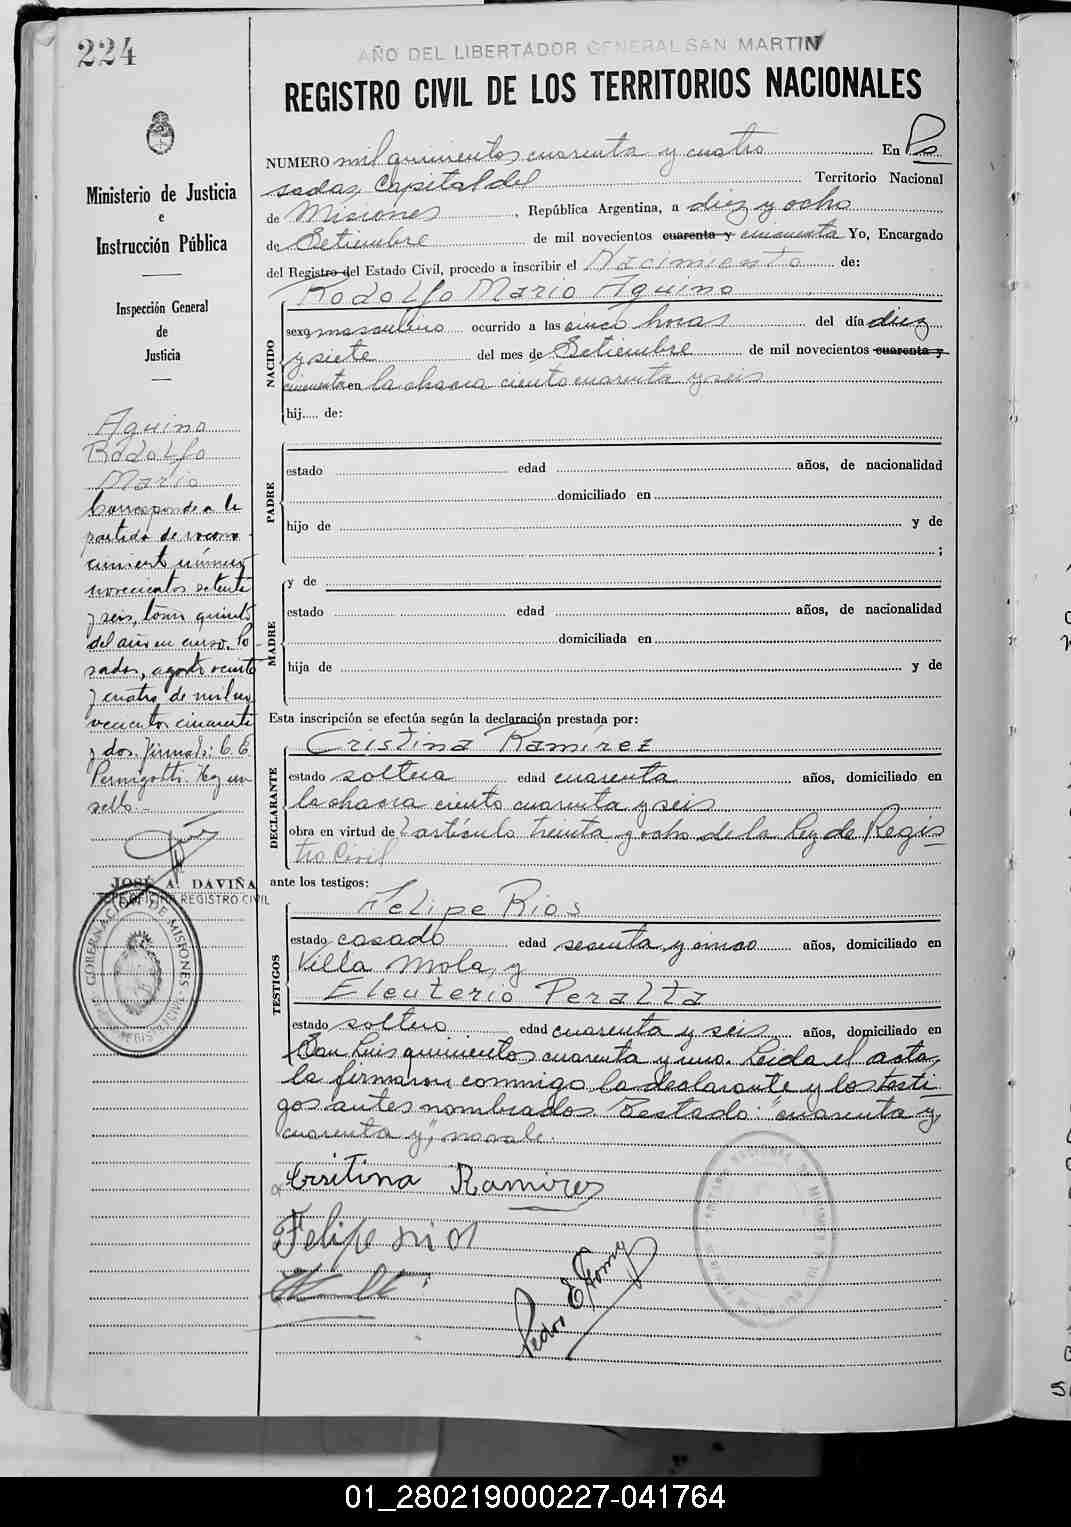 224
AÑO DEL LIBERTADOR GENERAL SAN MARTIN
REGISTRO CIVIL DE LOS TERRITORIOS NACIONALES
Ministerio de Justicia
e
Instrucción Pública
Inspección General
de
Justicia
Aquino
Rodolfo
Mario
Corresponde a la
partida de recono
cimiento número
novecientos setenta
y seis, tomo quinto
del año en curso. Po
sadas, agosto veinte
y cuatro de mil no
vecientos cincuenta
y dos. Firmado: C. E.
Hay un
sello.-
JOSÉ A. DAVIÑA
JEFE OFICINA REGISTRO CIVIL
GOBERNACIÓN DE MISIONES
NUMERO mil quinientos cuarenta y cuatro En Po
sadas, Capital del Territorio Nacional
de Misiones, República Argentina, a diez y ocho
de Setiembre de mil novecientos cuarenta y cincuenta Yo, Encargado
del Registro del Estado Civil, procedo a inscribir el Nacimiento de:
Rodolfo Mario Aquino
NACIDO
sexo masculino ocurrido a las cinco horas del día diez
y siete del mes de Setiembre de mil novecientos cuarenta y
cincuenta en la chacra ciento cuarenta y seis
hij..... de:
PADRE
estado edad años, de nacionalidad
domiciliado en
hijo de y de
;
MADRE
y de
estado edad años, de nacionalidad
domiciliada en
hija de y de
Esta inscripción se efectúa según la declaración prestada por:
DECLARANTE
Cristina Ramírez
estado soltera edad cuarenta años, domiciliado en
la chacra ciento cuarenta y seis
obra en virtud de artículo treinta y ocho de la Ley de Regis
tro Civil
ante los testigos:
TESTIGOS
Felipe Rios
estado casado edad sesenta y cinco años, domiciliado en
Villa Mola, y
Eleuterio Peralta
estado soltero edad cuarenta y seis años, domiciliado en
San Luis quinientos cuarenta y uno. Leida el acta,
la firmaron conmigo la declarante y los testi
gos antes nombrados. Testado: "cuarenta y,
cuarenta y", no vale.
Cristina Ramires
Felipe rios
Pedro E.
01_280219000227-041764